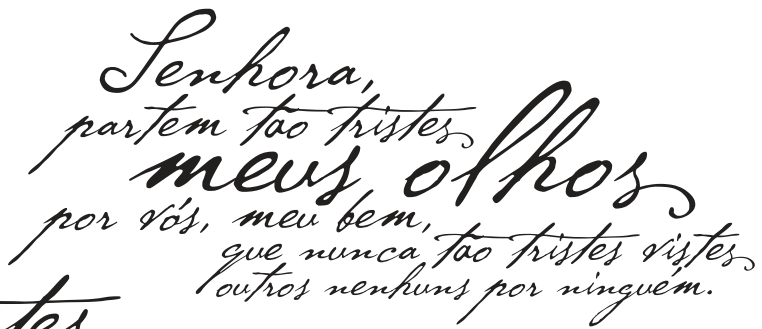 Senhora,
partem tão tristes
meus olhos
por vós, meu bem,
que nunca tão tristes vistes
outros nenhuns por ninguém.
tes